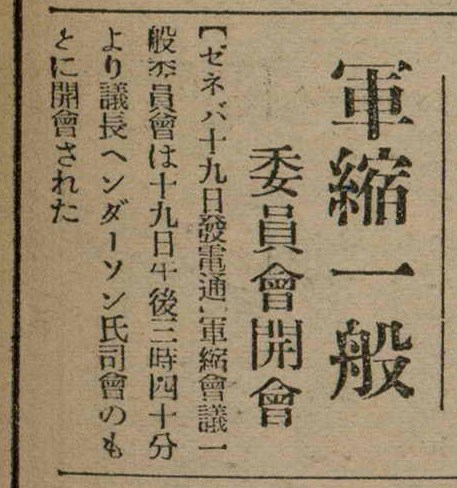 軍縮一般
委員會開會
【ゼネバ十九日發電通】軍縮會議一
般委員會は十九日午後三時四十分
より議長ヘンダーソン氏司會のも
とに開會された